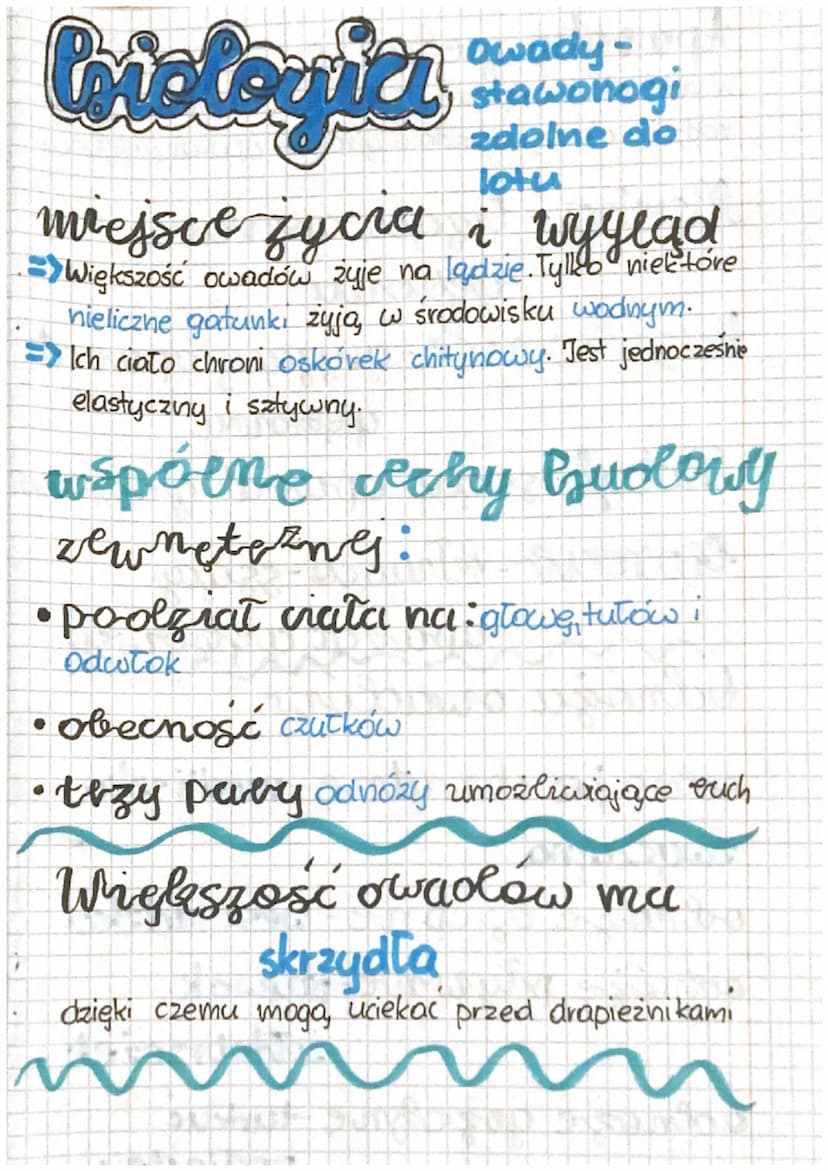 biologia
Owady -
stawonogi
zdolne do
lotu
miejsce życia i wygląd
=> Większość owadów żyje na lądzie. Tylko niektóre
nieliczne gatunki żyją w środowisku wodnym.
=> Ich ciało chroni oskórek chitynowy. Jest jednocześnie
elastyczny i sztywny.
wspólne cechy budowy
zewnętrznej:
• podział ciała na: głowę, tułów i
odwłok
• obecność czułków
• trzy pary odnóży umożliwiające ruch
Większość owadów ma
skrzydła
dzięki czemu mogą uciekać przed drapieżnikami